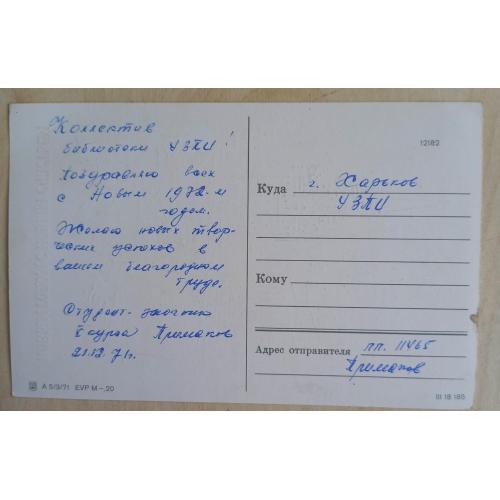 Коллектив
библиотеки УЗПИ!
Поздравляю всех
с Новым 1972-м
годом.
Желаю новых твор-
ческих успехов в
вашем благородном
труде.
Студент-заочник
курса Примаков
21.12.71г.
A 5/3/71 EVP M –,20
12182
Куда г. Харьков
УЗПИ
Кому
Адрес отправителя пп. 11465
Примаков
III 18 185